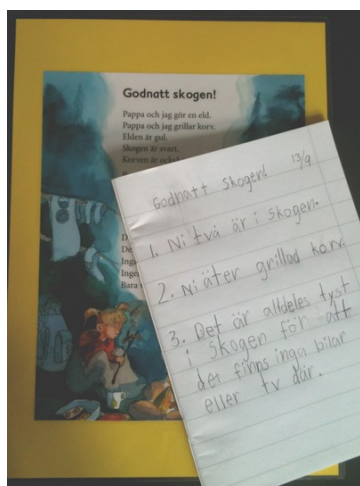 Godnatt skogen!
Pappa och jag gör en eld.
Pappa och jag grillar korv.
Elden är gul.
Skogen är svart.
Korven är också
Godnatt Skogen! 13/9
1. Ni två är i skogen.
2. Ni äter grillad korv.
3. Det är alldeles tyst
i skogen för att
det finns inga bilar
eller tv där.